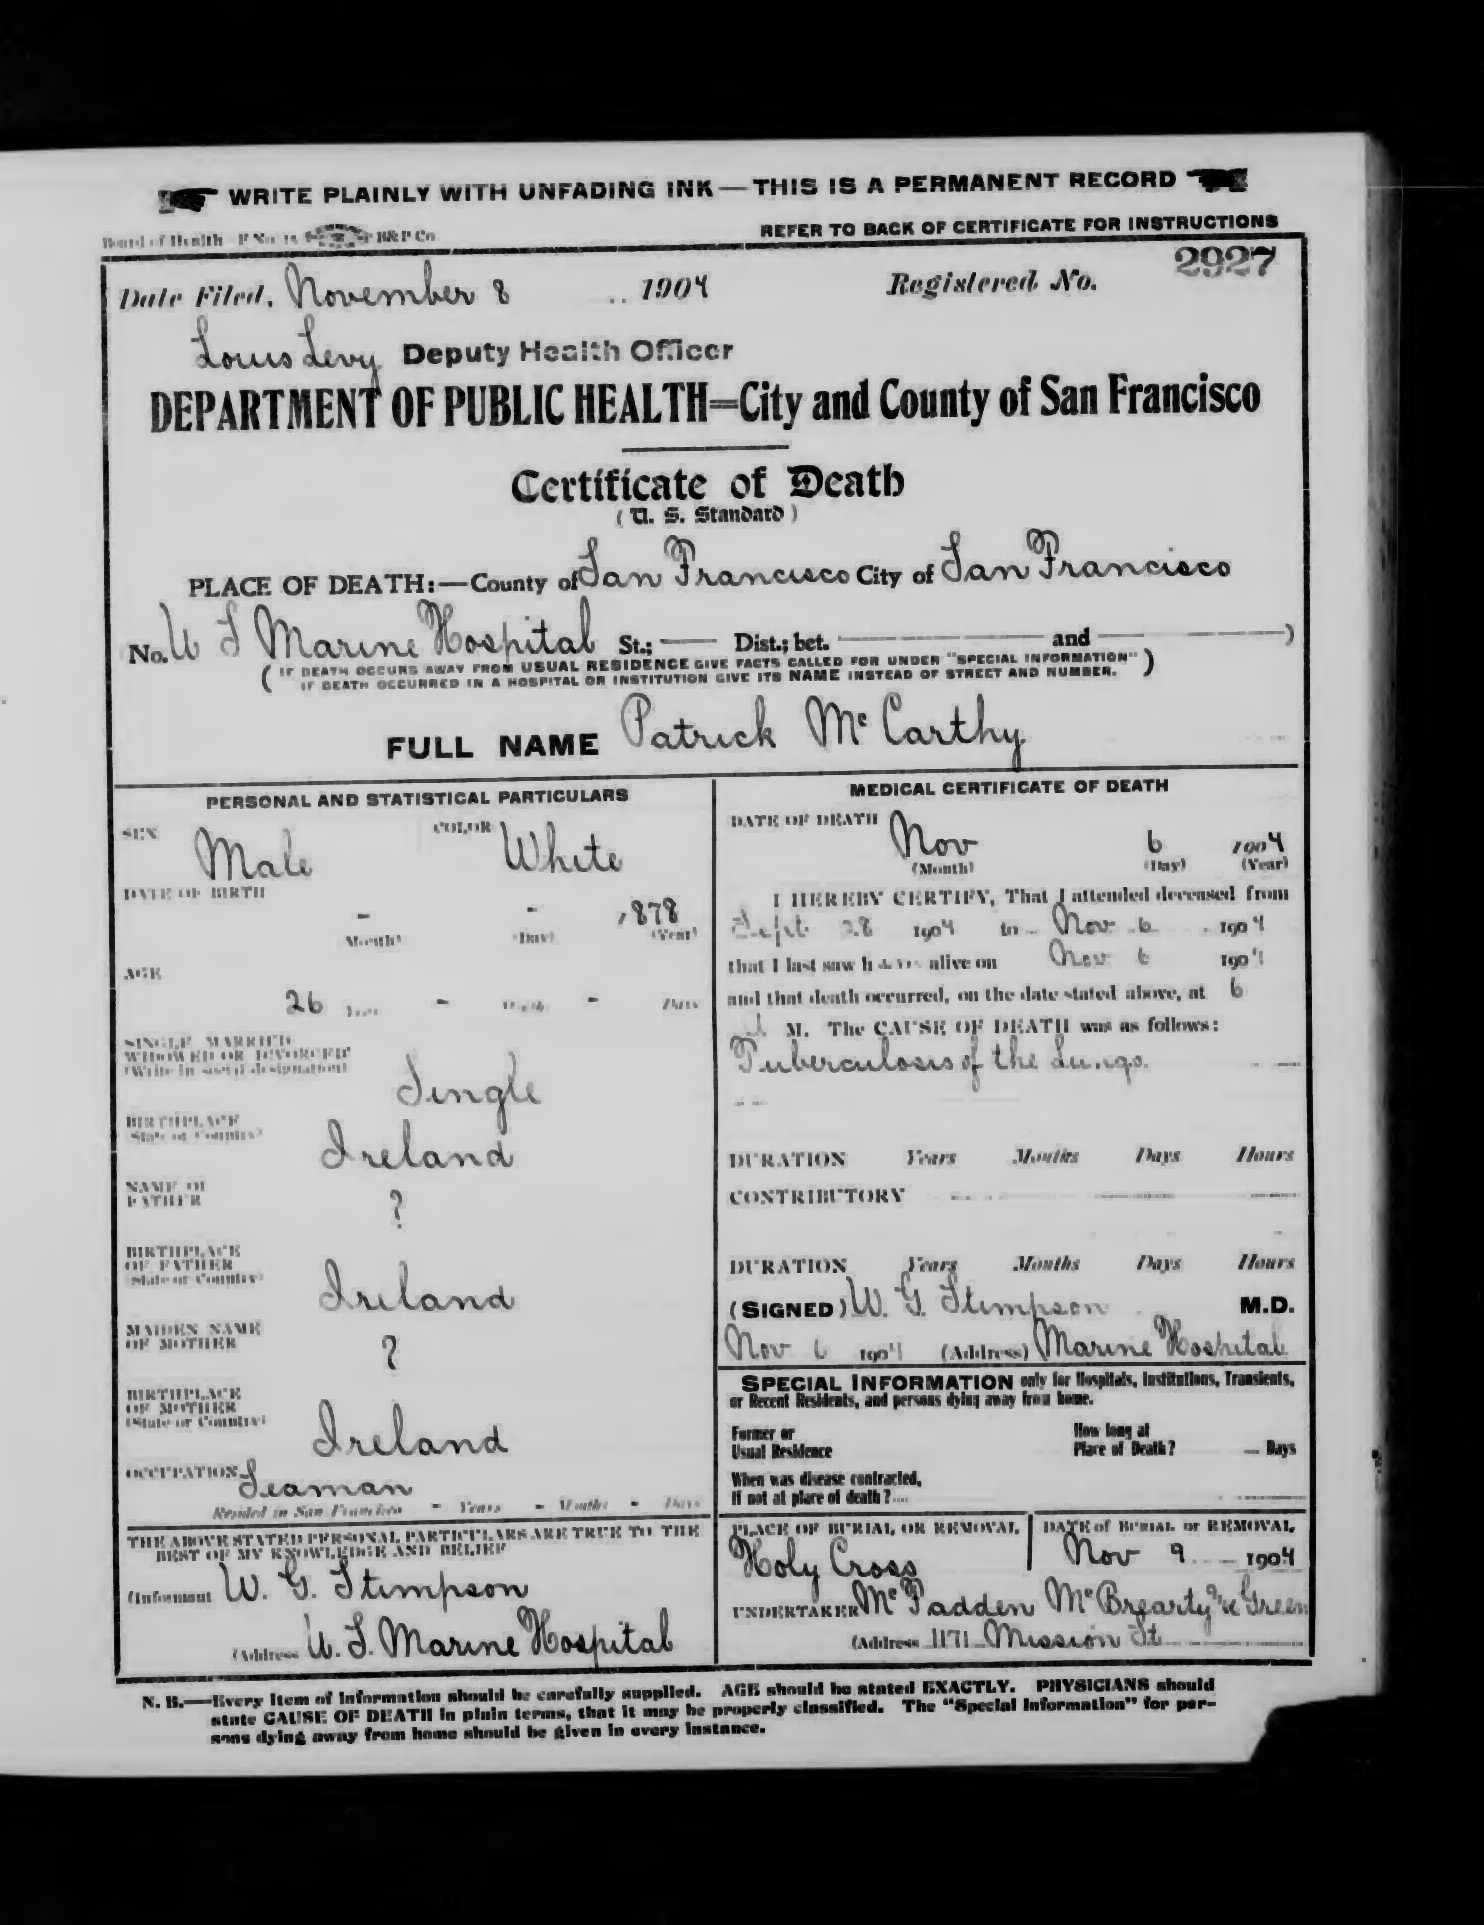 WRITE PLAINLY WITH UNFADING INK—THIS IS A PERMANENT RECORD
Board of Health F No. B&P Co
REFER TO BACK OF CERTIFICATE FOR INSTRUCTIONS
Date Filed, November 8 1904 Registered No. 2927
Louis Levy Deputy Health Officer
DEPARTMENT OF PUBLIC HEALTH=City and County of San Francisco
Certificate of Death
( U. S. Standard )
PLACE OF DEATH:—County of San Francisco City of San Francisco
No. U S Marine Hospital St.; — Dist.; bet. — and — )
( IF DEATH OCCURS AWAY FROM USUAL RESIDENCE GIVE FACTS CALLED FOR UNDER "SPECIAL INFORMATION" )
IF DEATH OCCURRED IN A HOSPITAL OR INSTITUTION GIVE ITS NAME INSTEAD OF STREET AND NUMBER.
FULL NAME Patrick McCarthy
PERSONAL AND STATISTICAL PARTICULARS
SEX Male COLOR White
DATE OF BIRTH
- - 1878
(Month) (Day) (Year)
AGE
26 Years - Months - Days
SINGLE MARRIED
WIDOWED OR DIVORCED
(Write in social designation)
Single
BIRTHPLACE
(State or Country)
Ireland
NAME OF
FATHER
?
BIRTHPLACE
OF FATHER
(State or Country)
Ireland
MAIDEN NAME
OF MOTHER
?
BIRTHPLACE
OF MOTHER
(State or Country)
Ireland
OCCUPATION Seaman
Resided in San Francisco - Years - Months - Days
THE ABOVE STATED PERSONAL PARTICULARS ARE TRUE TO THE
BEST OF MY KNOWLEDGE AND BELIEF
(Informant W. G. Stimpson
(Address U. S. Marine Hospital
MEDICAL CERTIFICATE OF DEATH
DATE OF DEATH
Nov 6 1904
(Month) (Day) (Year)
I HEREBY CERTIFY, That I attended deceased from
Sept 28 1904 to Nov 6 1904
that I last saw h alive on Nov 6 1904
and that death occurred, on the date stated above, at 6
M. The CAUSE OF DEATH was as follows:
Tuberculosis of the Lungs.
DURATION Years Months Days Hours
CONTRIBUTORY
DURATION Years Months Days Hours
(SIGNED) W. G. Stimpson M.D.
Nov 6 1904 (Address) Marine Hospital
SPECIAL INFORMATION only for Hospitals, Institutions, Transients,
or Recent Residents, and persons dying away from home.
Former or
Usual Residence
How long at
Place of Death? — Days
When was disease contracted,
If not at place of death?
PLACE OF BURIAL OR REMOVAL
Holy Cross
DATE of BURIAL or REMOVAL
Nov 9 1904
UNDERTAKER McFadden McBrearty & Green
(Address 1171 Mission St
N. B.—Every item of information should be carefully supplied. AGE should be stated EXACTLY. PHYSICIANS should
state CAUSE OF DEATH in plain terms, that it may be properly classified. The "Special Information" for per-
sons dying away from home should be given in every instance.